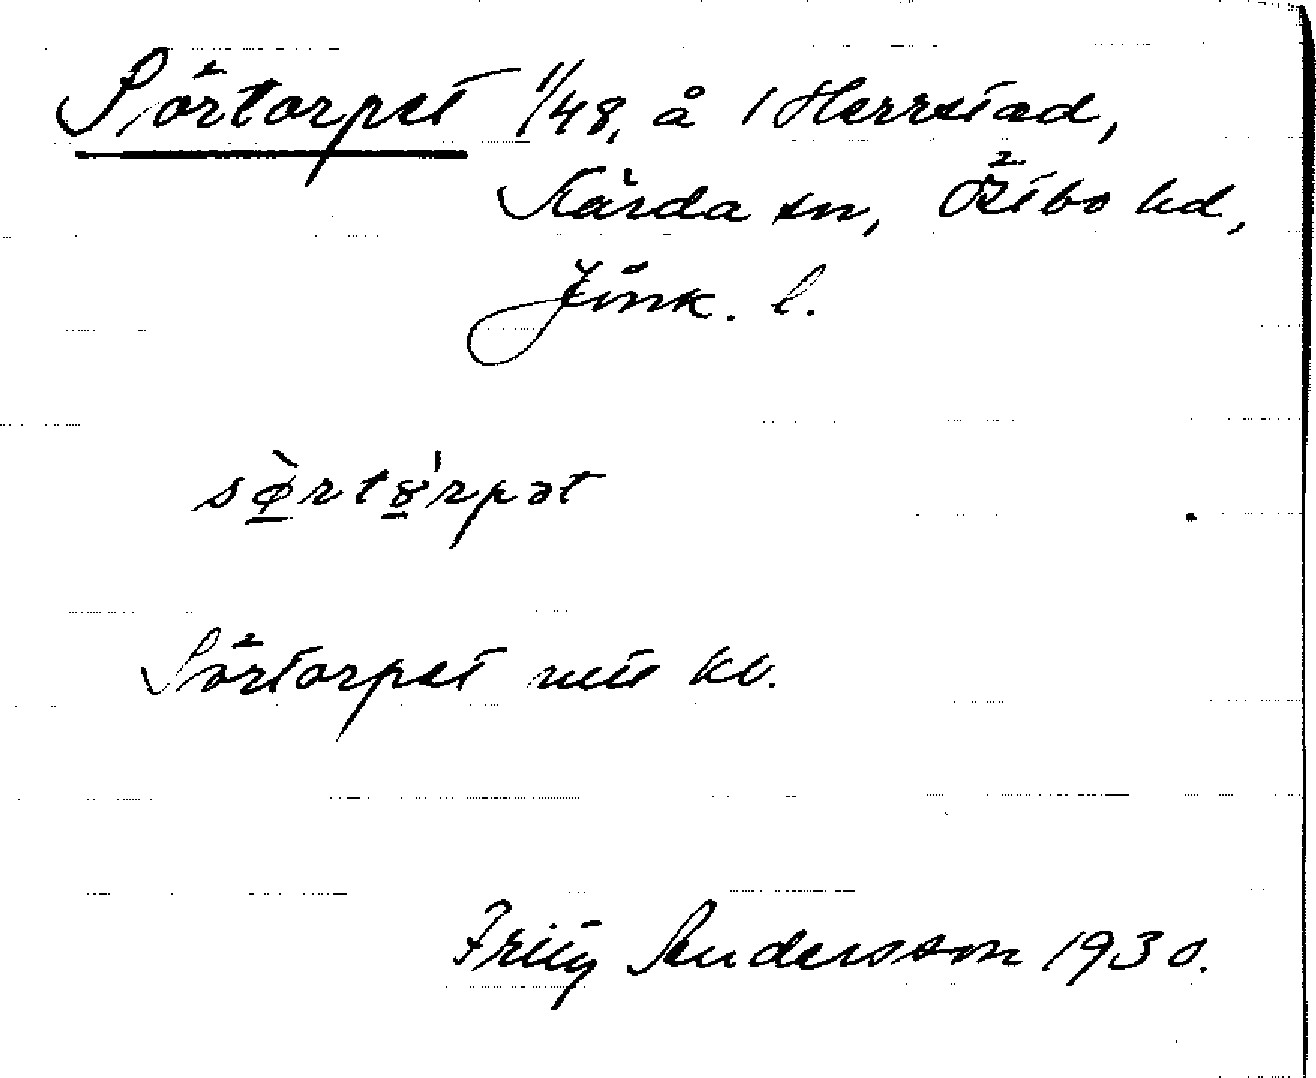 Sörtorpet 1/48, å 1 Herrestad,
Kärda sn, Östbo hd,
Jönk. l.
sø̀rtɣ̍rpət
Sörtorpet utt kv.
Fritz Andersson 1930.